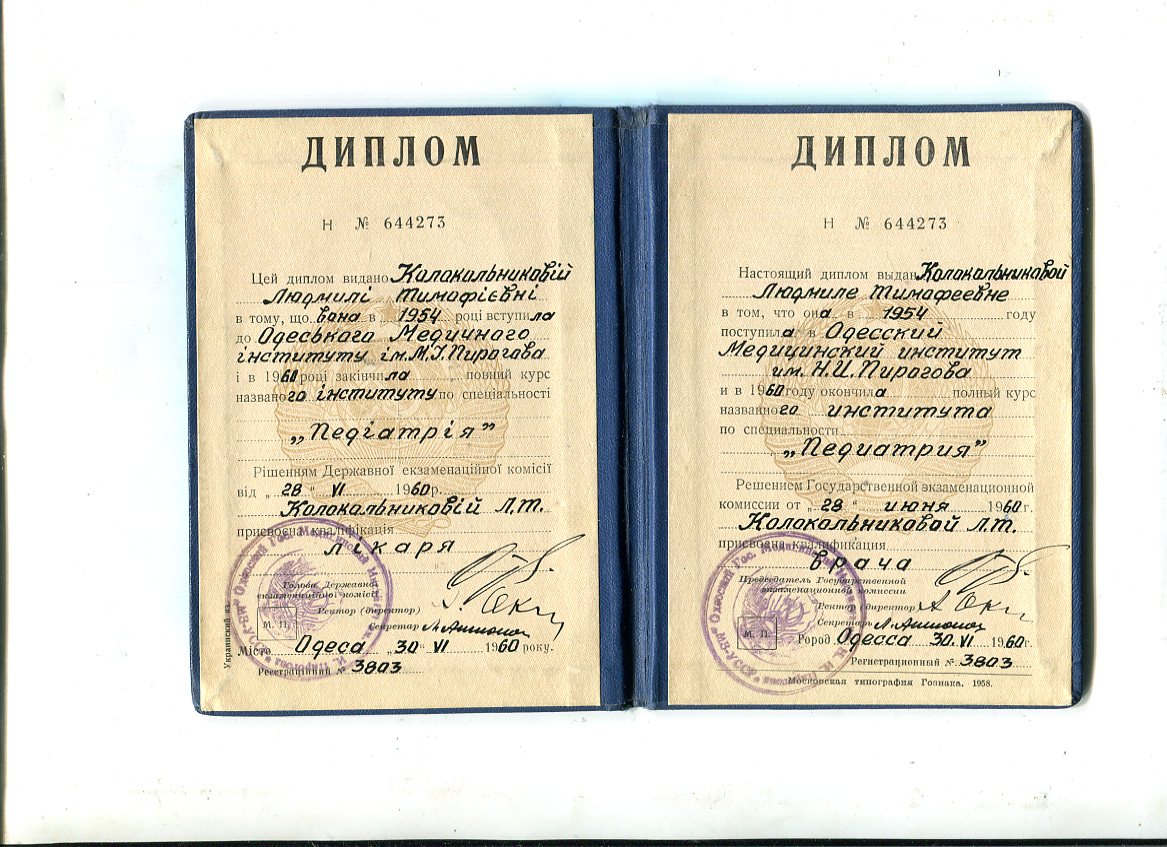 ДИПЛОМ
Н № 644273
Цей диплом видано Колокольниковій
Людмилі Тимофієвні
в тому, що вона в 1954 році вступила
до Одеського Медичного
інституту ім. М.І. Пирогова
і в 1960 році закінчила повний курс
названого інституту по спеціальності
„Педіатрія”
Рішенням Державної екзаменаційної комісії
від „28“ VI 1960 р.
Колокольниковій Л.Т.
присвоєна кваліфікація
лікаря
Голова Державної
екзаменаційної комісії
Ректор (директор)
Секретар
М. П.
Місто Одеса „30“ VI 1960 року.
Реєстраційний № 3803
Украинский яз.
ДИПЛОМ
Н № 644273
Настоящий диплом выдан Колокольниковой
Людмиле Тимофеевне
в том, что она в 1954 году
поступила в Одесский
Медицинский институт
им. Н.И. Пирогова
и в 1960 году окончила полный курс
названного института
по специальности
„Педиатрия”
Решением Государственной экзаменационной
комиссии от „28“ июня 1960 г.
Колокольниковой Л.Т.
присвоена квалификация
врача
Председатель Государственной
экзаменационной комиссии
Ректор (директор)
Секретарь
М. П.
Город Одесса 30.VI 1960 г.
Регистрационный № 3803
Московская типография Гознака. 1958.